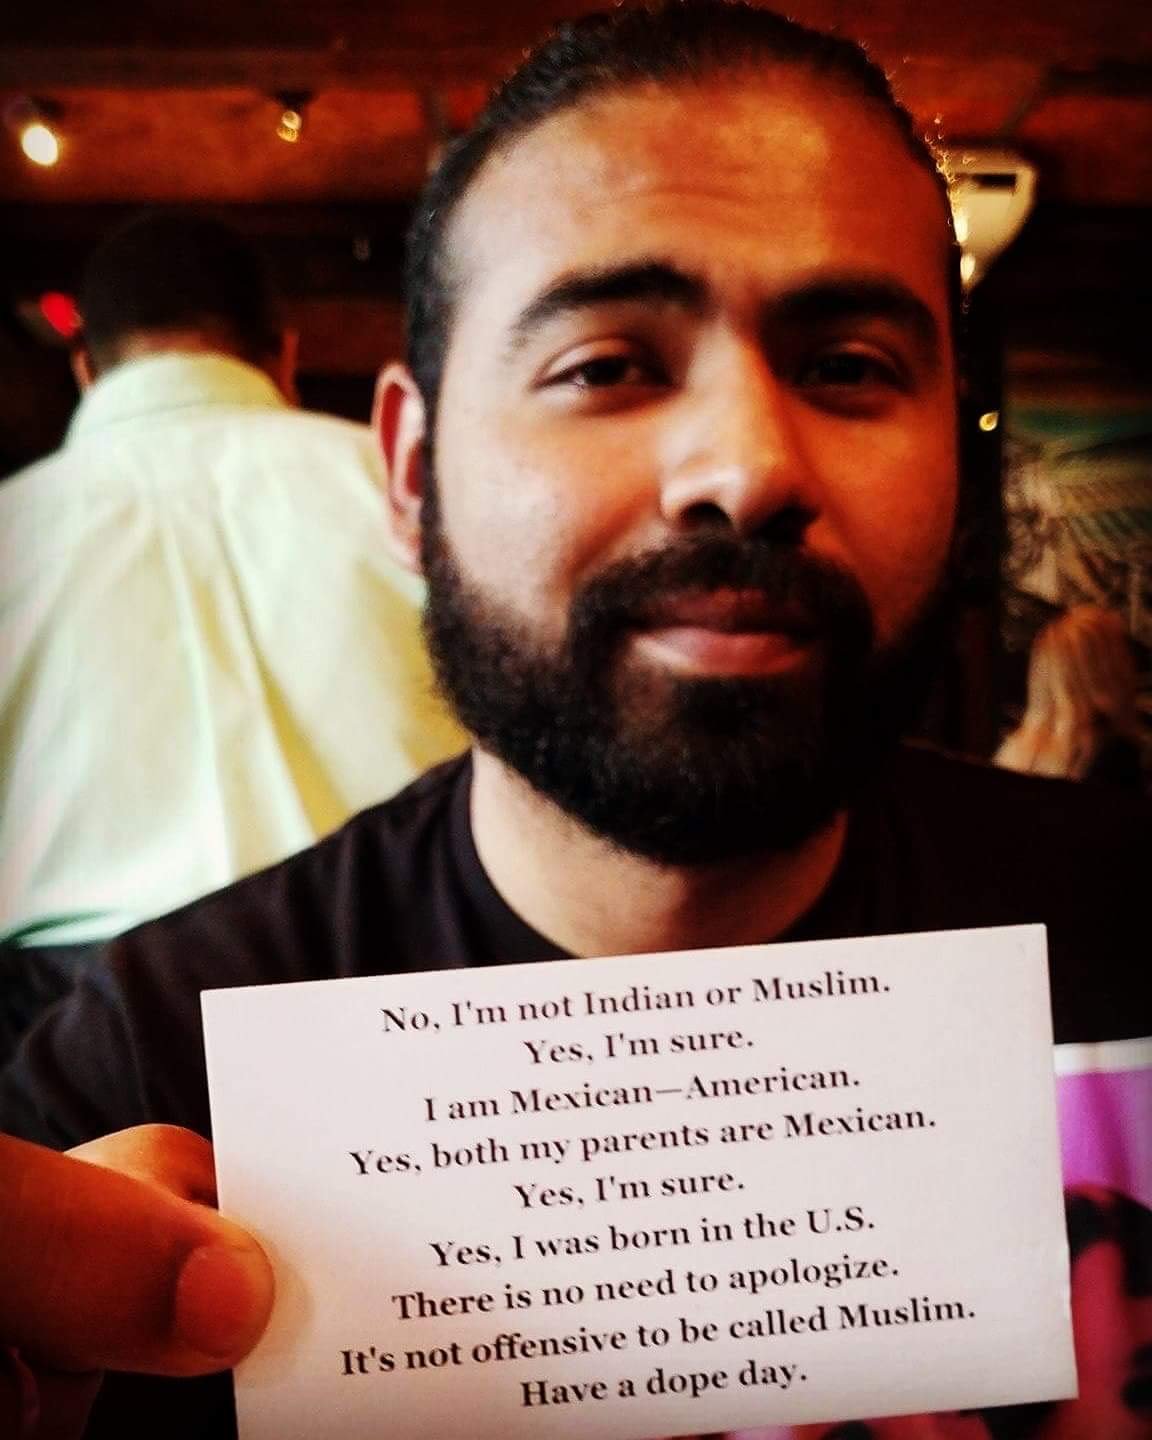 No, I'm not Indian or Muslim.
Yes, I'm sure.
I am Mexican—American.
Yes, both my parents are Mexican.
Yes, I'm sure.
Yes, I was born in the U.S.
There is no need to apologize.
It's not offensive to be called Muslim.
Have a dope day.